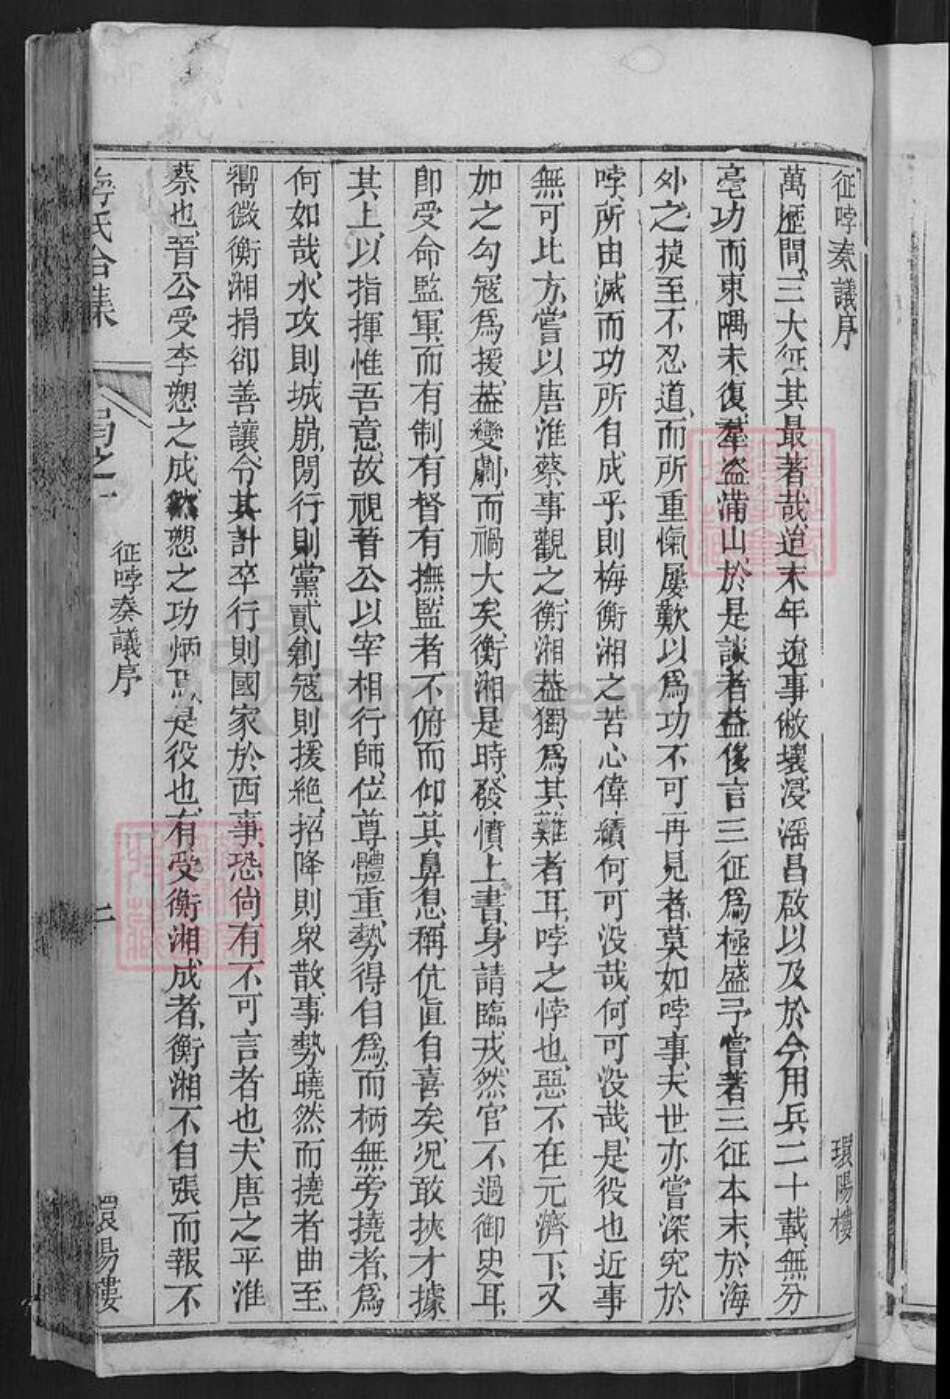 征哱奏議序
環陽樓
萬曆間三大征其最著哉迨末年遼事敝壞浸淫昌啟以及於今用兵二十載無分
毫功而東隅未復羣盜滿山於是談者益侈言三征爲極盛予嘗著三征本末於海
外之㨗至不忍道而所重愾屢歎以爲功不可再見者莫如哱事夫世亦嘗深究於
哱所由滅而功所自成乎則梅衡湘之苦心偉績何可没哉何可没哉是役也近事
無可比方嘗以唐淮蔡事觀之衡湘葢獨爲其難者耳哱之悖也惡不在元濟下又
加之勾冦爲援葢變劇而禍大矣衡湘是時發憤上書身請臨戎然官不過御史耳
卽受命監軍而有制有督有撫監者不俯而仰其鼻息稱伉直自喜矣况敢挾才據
其上以指揮惟吾意故視晉公以宰相行師位尊體重勢得自爲而柄無旁撓者爲
何如哉水攻則城崩閉行則黨貳創冦則援絶招降則衆散事勢曉然而撓者曲至
嚮微衡湘捐卻善讓令其計卒行則國家於西事恐尙有不可言者也夫唐之平淮
蔡也晉公受李愬之成然愬之功炳焉是役也有受衡湘成者衡湘不自張而報不
梅氏合集
首之一
征哱奏議序
二
環陽樓
FamilySearch